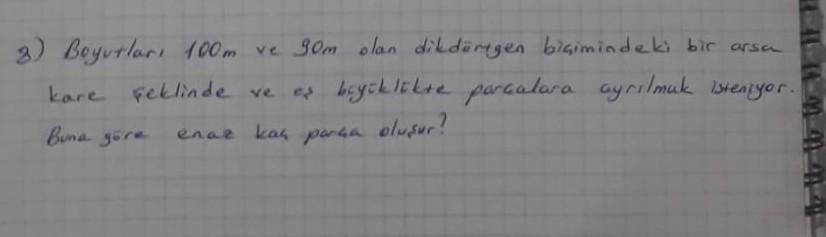 3) Boyutları 100m ve 90m olan dikdörtgen biçimindeki bir arsa
kare şeklinde ve eş büyüklükte parçalara ayrılmak isteniyor.
Buna göre enaz kaç parça oluşur?